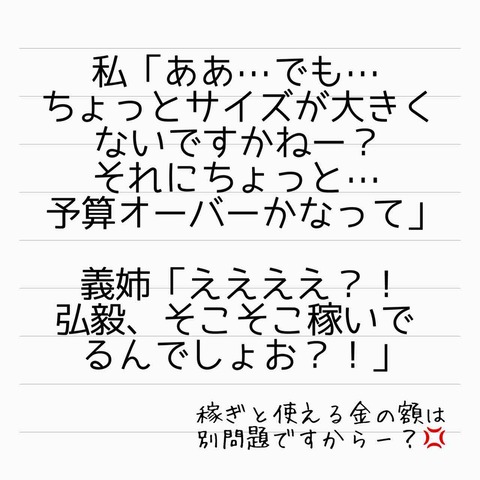 私「ああ…でも…
ちょっとサイズが大きく
ないですかねー？
それにちょっと…
予算オーバーかなって」
義姉「ええええ？！
弘毅、そこそこ稼いで
るんでしょお？！」
稼ぎと使える金の額は
別問題ですからー？💢